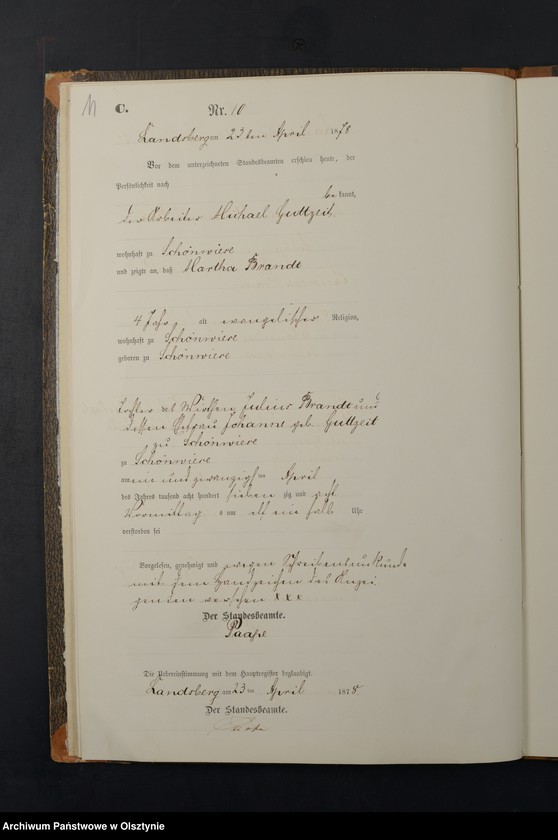 11
C.
Nr. 10
Landsberg am 23ten April 1878
Vor dem unterzeichneten Standesbeamten erschien heute, der
Persönlichkeit nach
be kannt,
der Arbeiter Michael Guttzeit
wohnhaft zu Schönwiese
und zeigte an, daß Martha Brandt
4 Jahr alt evangelischer Religion,
wohnhaft zu Schönwiese
geboren zu Schönwiese
Tochter des Wirthen Julius Brandt und
dessen Ehefrau Johanne geb. Guttzeit
zu Schönwiese
zu Schönwiese
am ein und zwanzigsten April
des Jahres tausend acht hundert sieben zig und acht
Vormittag s um elf ein halb Uhr
verstorben sei
Vorgelesen, genehmigt und wegen Schreibensunkunde
mit dem Handzeichen des Anzei
genden versehen xxx
Der Standesbeamte.
Die Uebereinstimmung mit dem Hauptregister beglaubigt.
Landsberg am 23 ten April 1878
Der Standesbeamte.
Archiwum Państwowe w Olsztynie